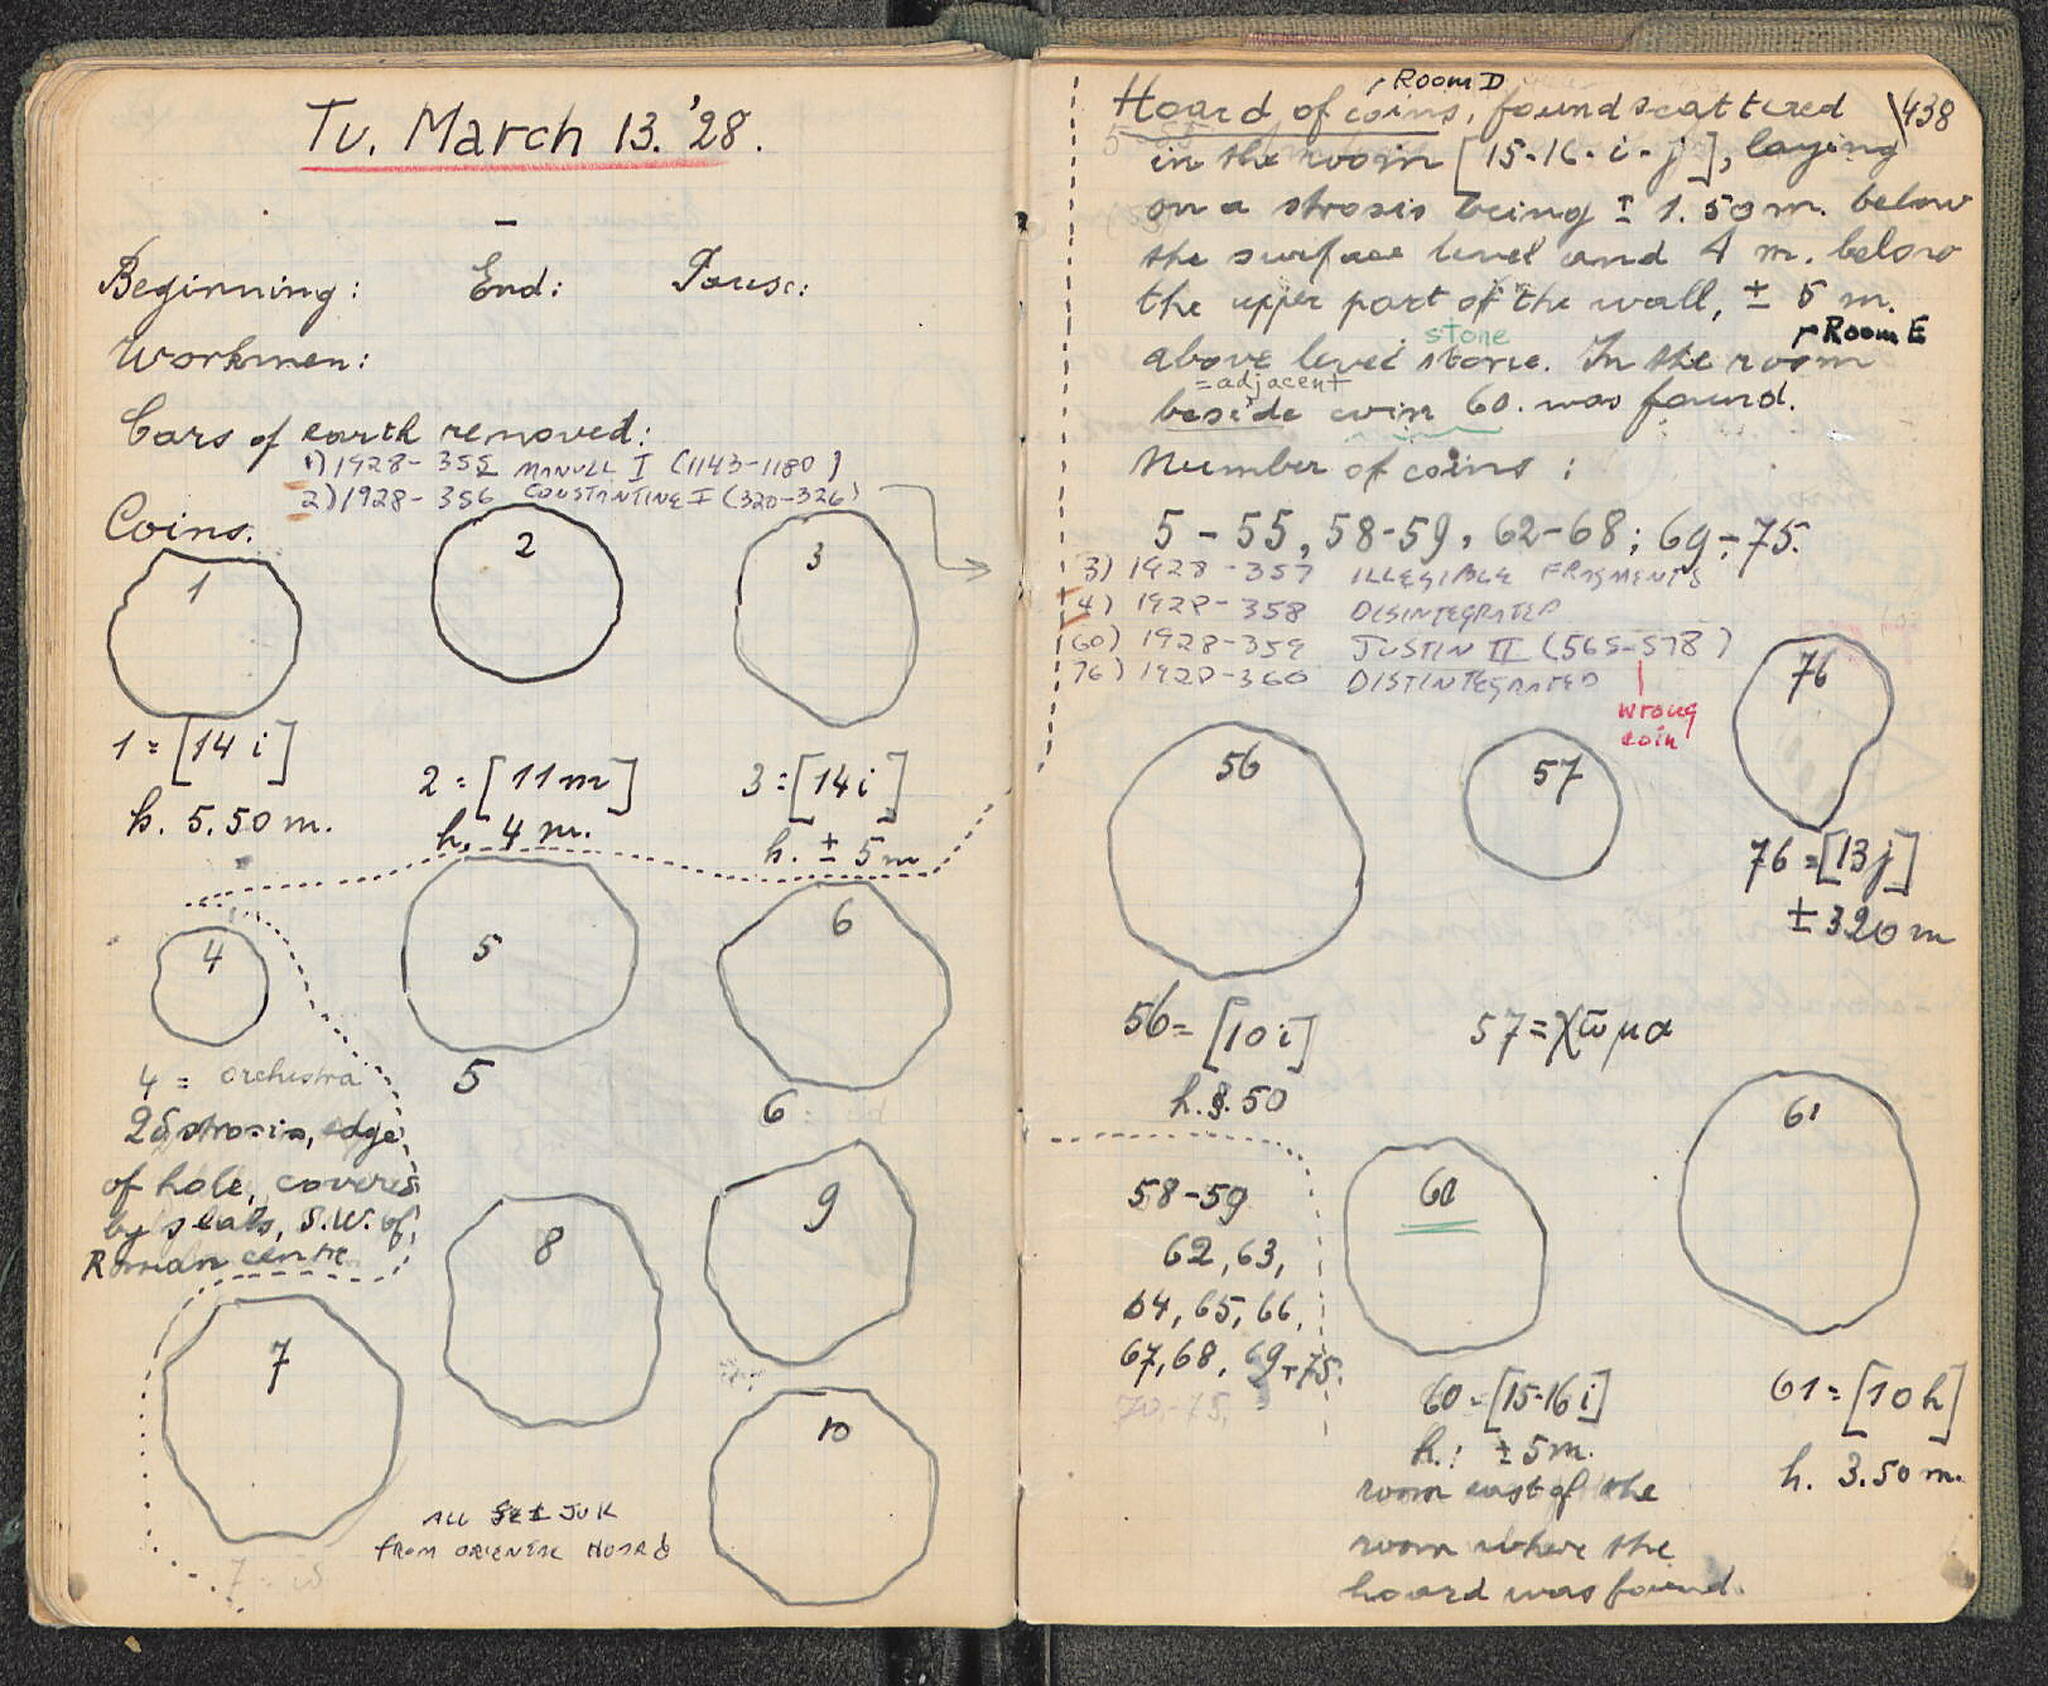 Tu. March 13. '28.
Beginning: End: Pause:
Workmen:
Cars of earth removed:
1) 1928-355 MANUEL I (1143-1180)
2) 1928-356 CONSTANTINE I (320-326)
Coins.
1
2
3
1 = [14 i]
h. 5.50 m.
2 = [11 m]
h. 4 m.
3 = [14 i]
h. ± 5 m
4
5
6
4 = orchestra
2δ strosis, edge
of hole, covered
by slabs, S.W. of
Roman centre
5
6 = id
7
8
9
10
7 = id
ALL
FROM HOARD
438
Room D
Hoard of coins, found scattered
in the room [15-16-i-j], laying
on a strosis being ± 1.50 m. below
the surface level and 4 m. below
the upper part of the wall, ± 5 m.
stone
Room E
above level stone. In the room
= adjacent
beside coin 60. was found.
Number of coins:
5 - 55, 58-59, 62-68; 69 - 75.
3) 1928-357 ILLEGIBLE FRAGMENTS
4) 1928-358 DISINTEGRATED
60) 1928-359 JUSTIN II (565-578)
76) 1928-360 DISTINTEGRATED
wrong
coin
56
57
76
76 = [13 j]
± 320 m
56 = [10 i]
h. 50
57 = χῶμα
58-59
62, 63,
64, 65, 66,
67, 68, 69 - 75.
70-75,
60
61
60 = [15-16 i]
h.: ± 5 m.
room east of the
room where the
hoard was found.
61 = [10 h]
h. 3.50 m.